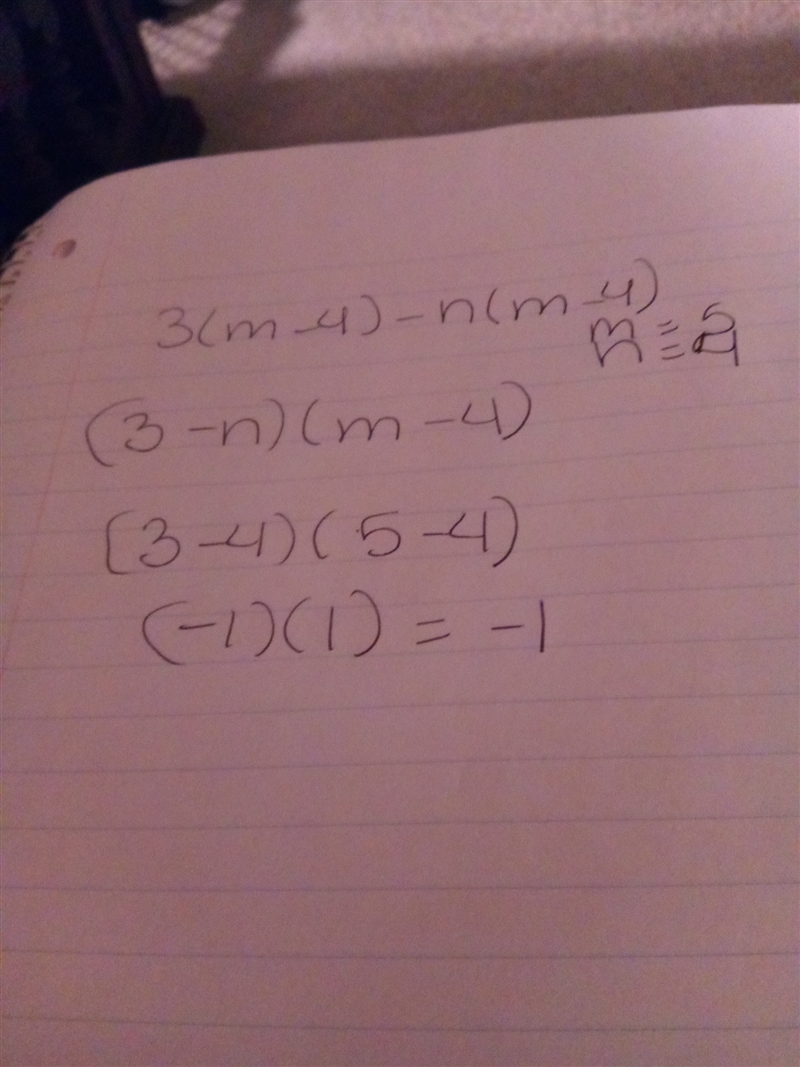 3(m-4)-n(m-4)
m = 5
n = 4
(3-n)(m-4)
(3-4)(5-4)
(-1)(1) = -1